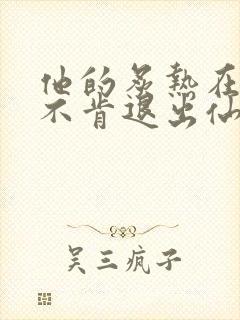 他的炙热在
不肯退出仙
吴三疯子